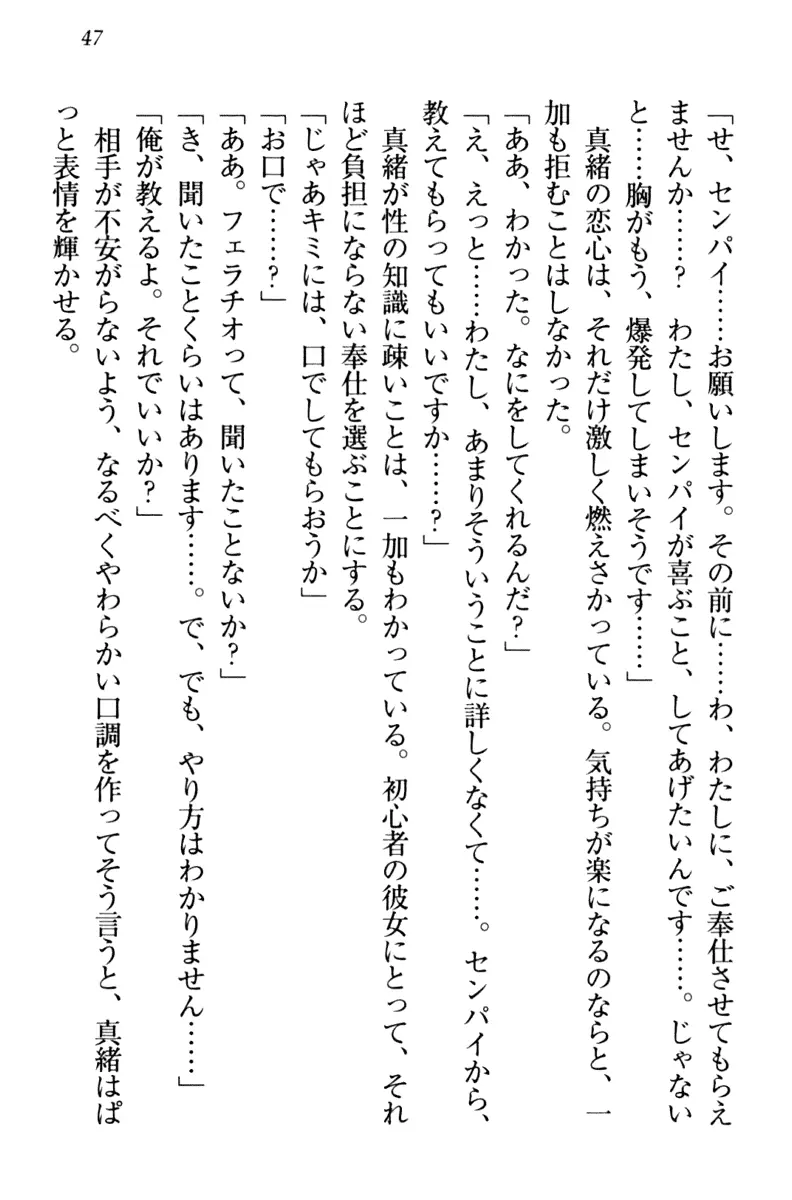 47
「せ、センパイ……お願いします。その前に……わ、わたしに、ご奉仕させてもらえ
ませんか……?　わたし、センパイが喜ぶこと、してあげたいんです……。じゃない
と……胸がもう、爆発してしまいそうです……」
　真緒の恋心は、それだけ激しく燃えさかっている。気持ちが楽になるのならと、一
加も拒むことはしなかった。
「ああ、わかった。なにをしてくれるんだ?」
「え、えっと……わたし、あまりそういうことに詳しくなくて……。センパイから、
教えてもらってもいいですか……?」
　真緒が性の知識に疎いことは、一加もわかっている。初心者の彼女にとって、それ
ほど負担にならない奉仕を選ぶことにする。
「じゃあキミには、口でしてもらおうか」
「お口で……?」
「ああ。フェラチオって、聞いたことないか?」
「き、聞いたことくらいはあります……。で、でも、やり方はわかりません……」
「俺が教えるよ。それでいいか?」
　相手が不安がらないよう、なるべくやわらかい口調を作ってそう言うと、真緒はぱ
っと表情を輝かせる。